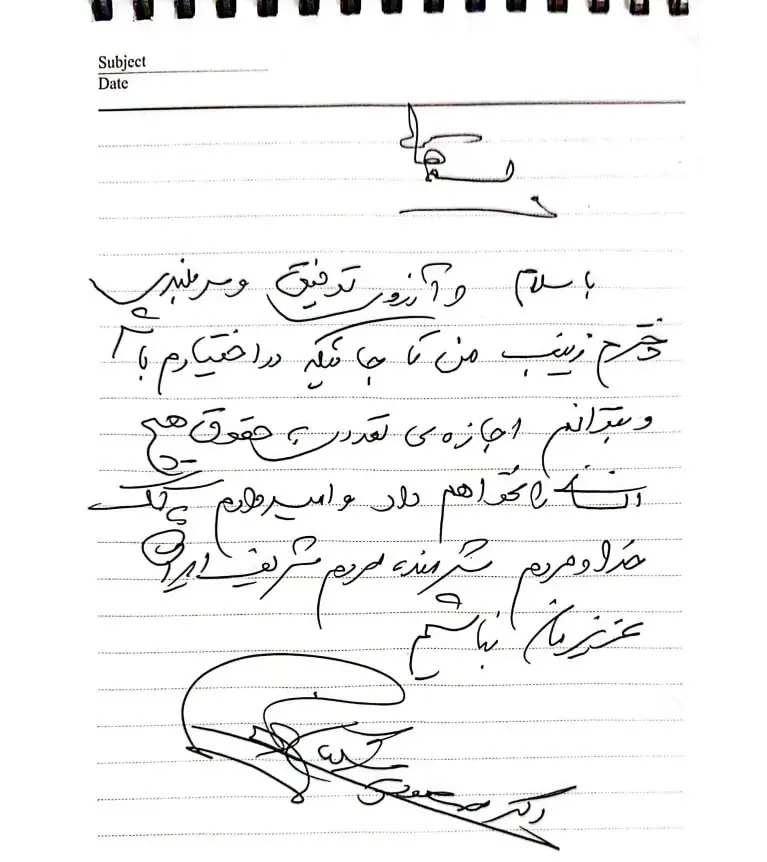 Subject
Date
با سلام و آرزوی توفیق و سربلندی
دخترم زینب من تا جائیکه در اختیارم باشد
و بتوانم اجازه‌ی تعدی به حقوق هیچ
انسانی را نخواهم داد و امیدوارم به کمک
خدا و مردم شرمنده مردم شریف ایران
عزیزمان نباشیم
دکتر مسعود